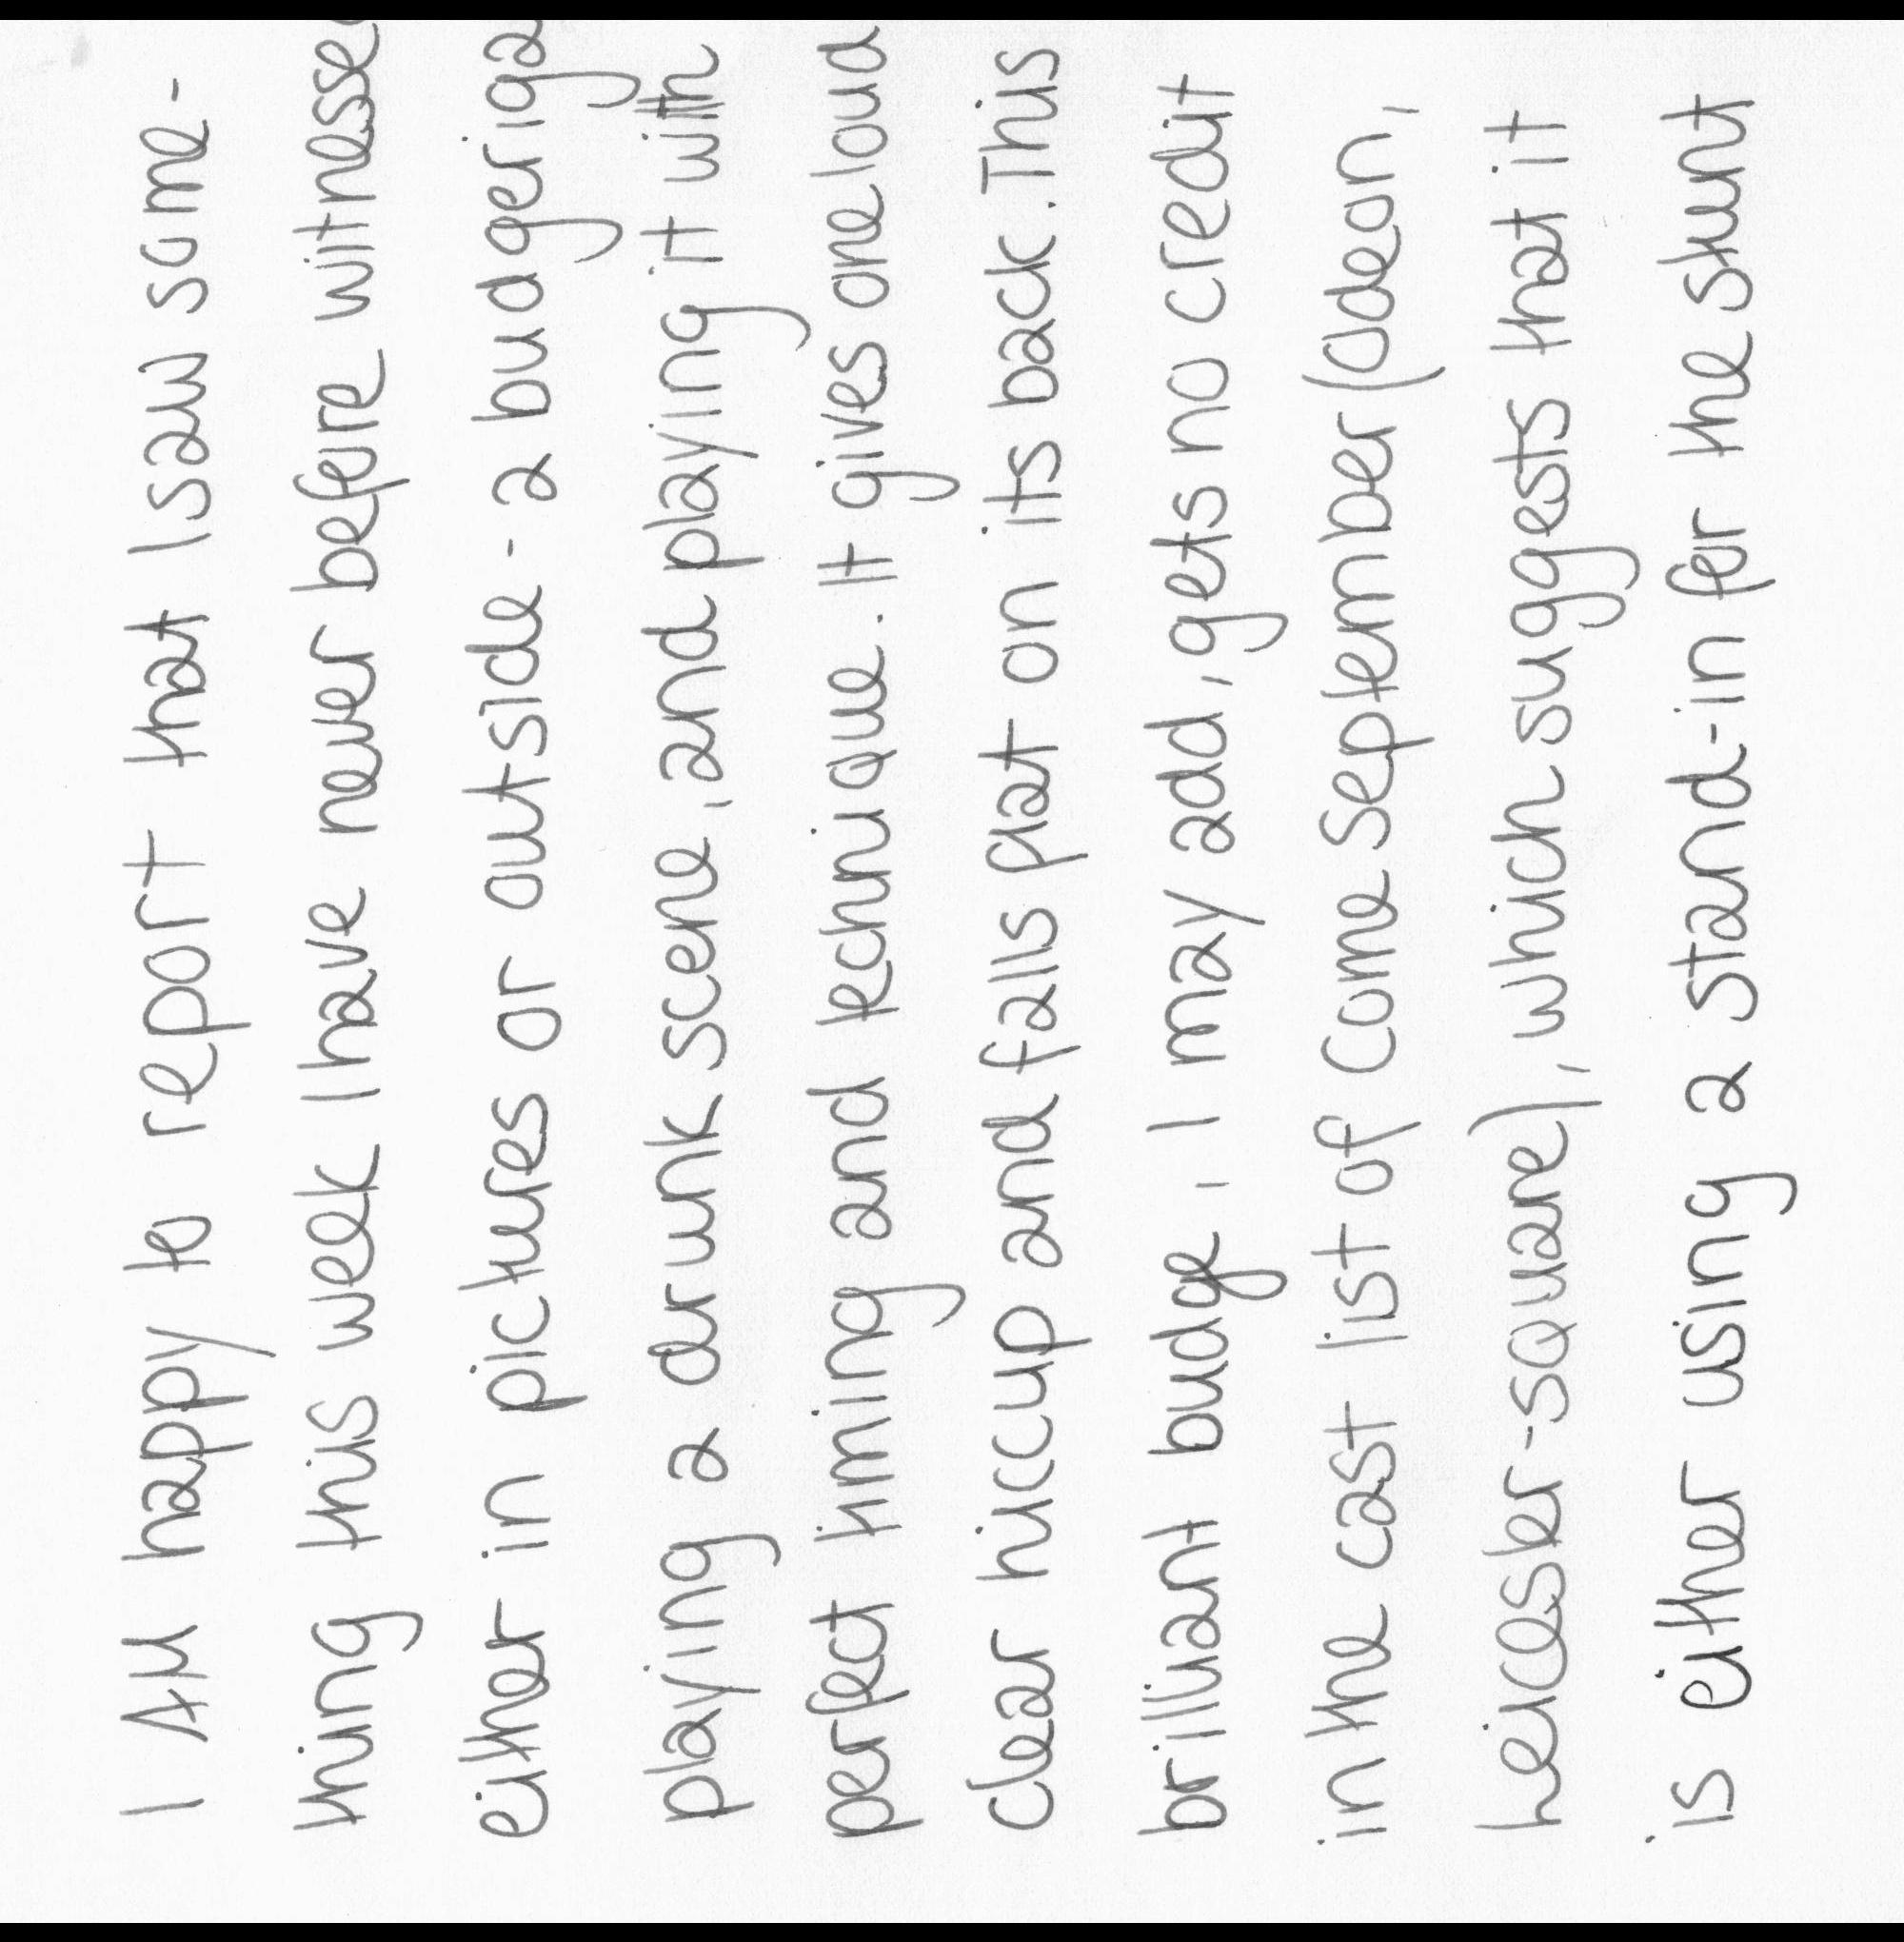 I AM happy to report that I saw some-
thing this week I have never before witnessed
either in pictures or outside - a budgeriga
playing a drunk scene, and playing it with
perfect timing and technique. It gives one loud
clear hiccup and falls flat on its back. This
brilliant budge, I may add, gets no credit
in the cast list of Come September (Odeon,
Leicester-square), which suggests that it
is either using a stand-in for the stunt